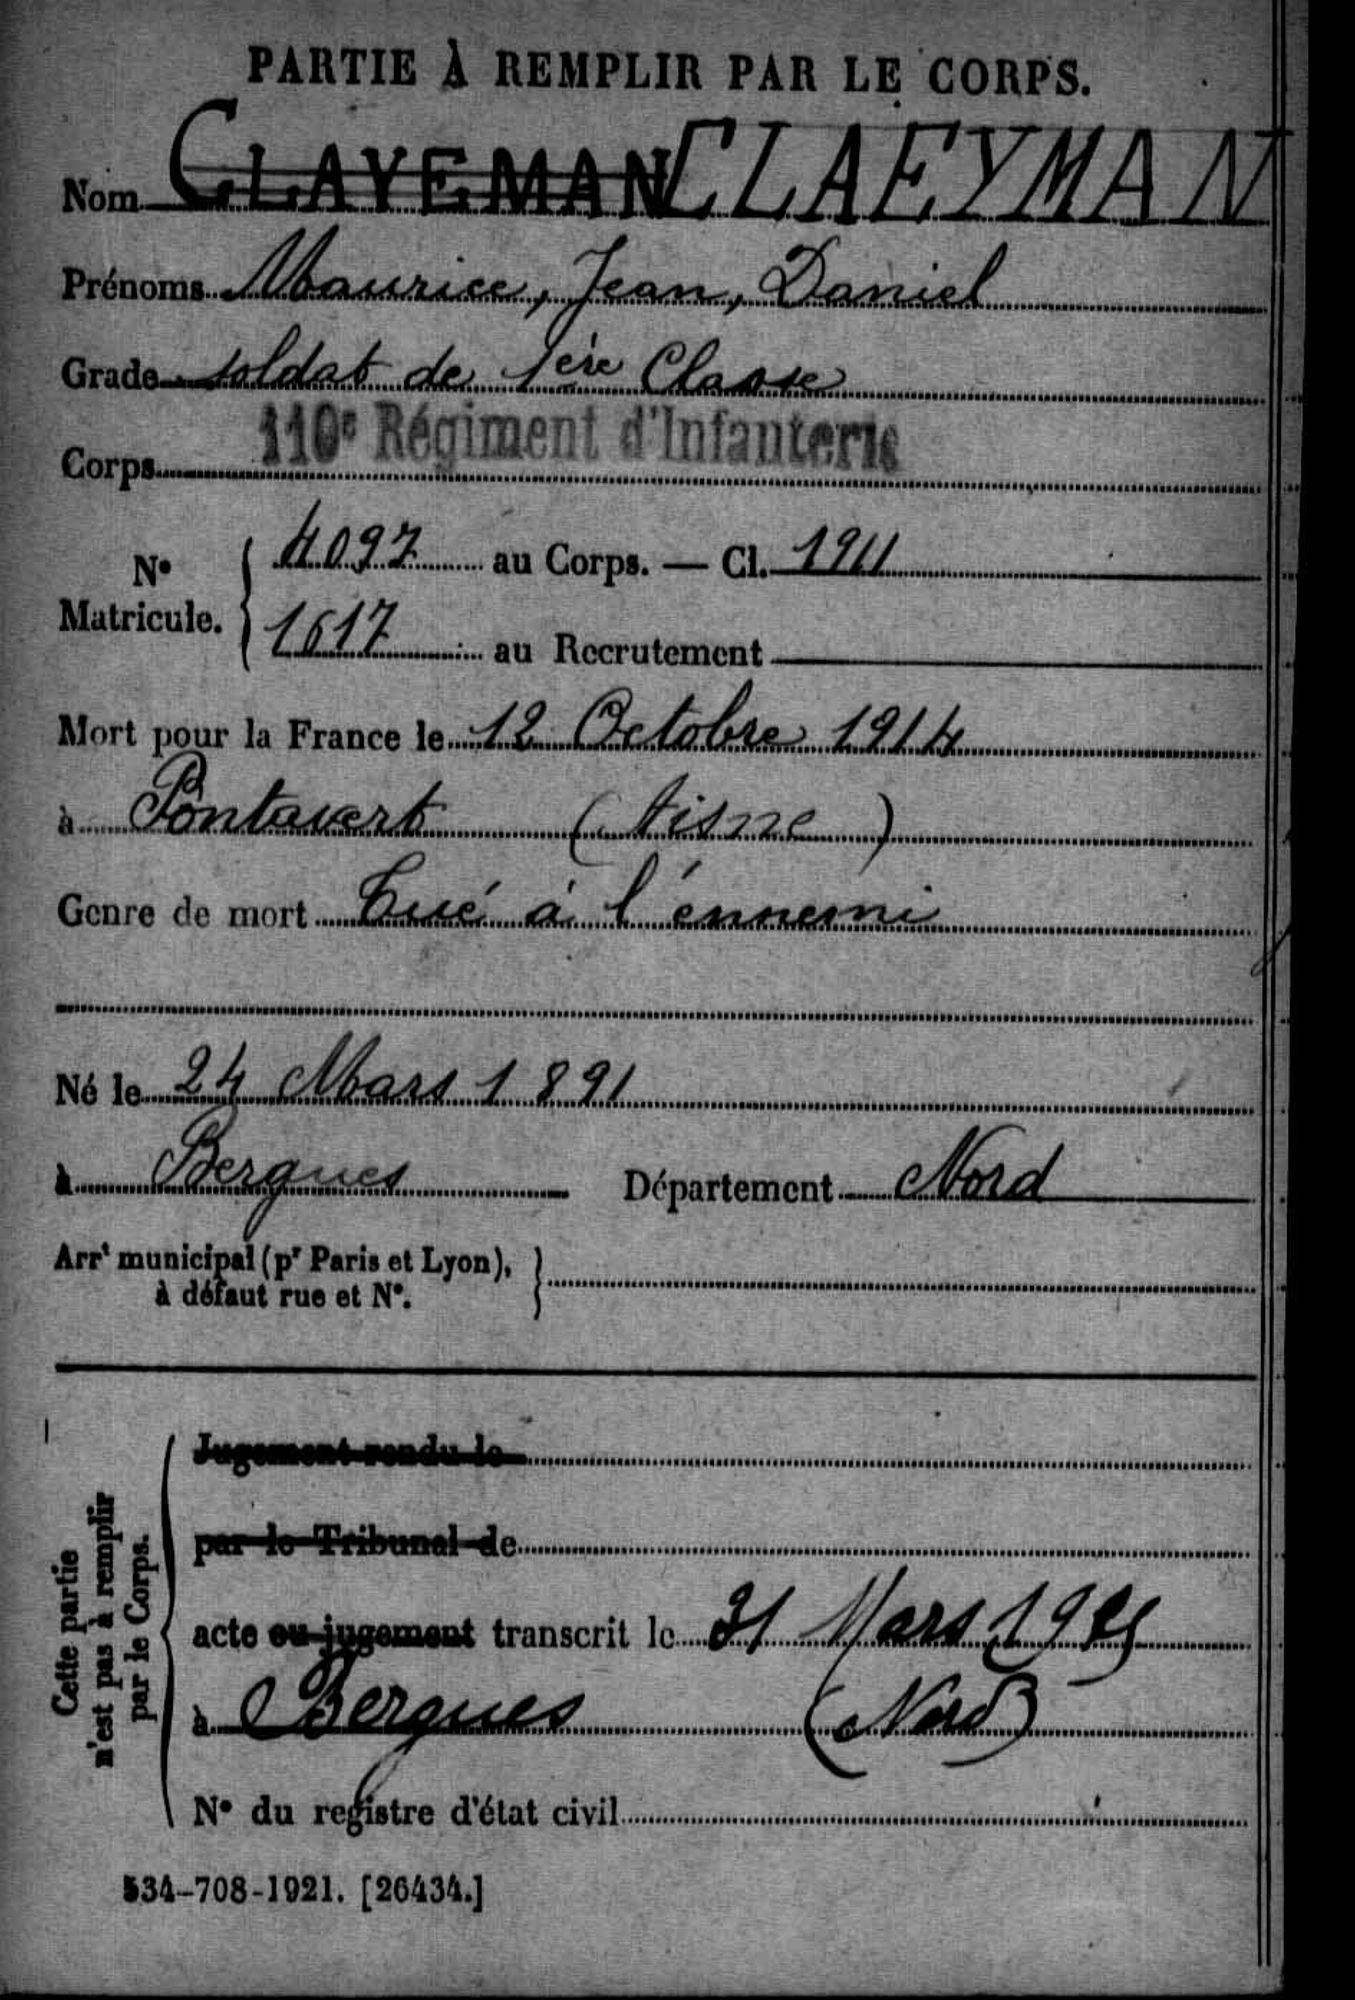 PARTIE À REMPLIR PAR LE CORPS.
Nom CLAYEMAN CLAEYMAN
Prénoms Maurice, Jean, Daniel
Grade soldat de 1ère Classe
Corps 110e Régiment d'Infanterie
No Matricule. { 4097 au Corps. — Cl. 1911
1617 au Recrutement
Mort pour la France le 12 Octobre 1914
à Pontavert (Aisne)
Genre de mort Tué à l'énnemi
Né le 24 Mars 1891
à Bergues Département Nord
Arrt municipal (pr Paris et Lyon),
à défaut rue et No.
Cette partie
n'est pas à remplir
par le Corps.
Jugement rendu le
par le Tribunal de
acte ou jugement transcrit le 31 Mars
à Bergues (Nord)
No du registre d'état civil
534-708-1921. [26434.]